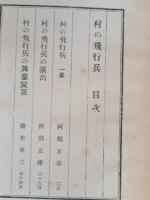 村の飛行兵 目次
村の飛行兵 一幕 阿部正雄
村の飛行兵の演出 阿部正雄
村の飛行兵の舞臺装置 橋本欣三